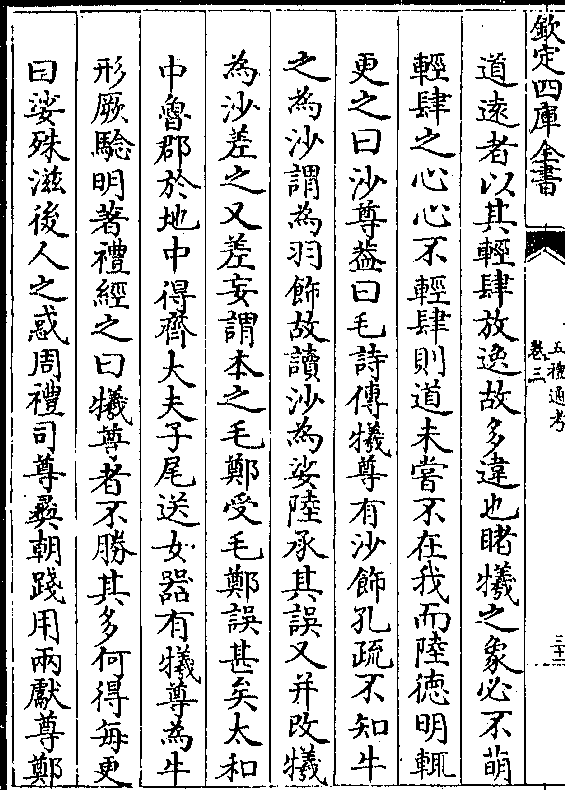 欽定四庫全書
五禮通考
卷三
三十二
道遠者以其輕肆放逸故多違也睹犧之象必不萌
輕肆之心心不輕肆則道未嘗不在我而陸德明輒
更之曰沙尊葢曰毛詩傳犧尊有沙飾孔疏不知牛
之為沙謂為羽飾故讀沙為娑陸承其誤又并改犧
為沙差之又差妄謂本之毛鄭受毛鄭誤甚矣太和
中魯郡於地中得齊大夫子尾送女器有犧尊為牛
形厥騐明著禮經之曰犧尊者不勝其多何得每更
曰娑殊滋後人之惑周禮司尊彞朝踐用兩獻尊鄭